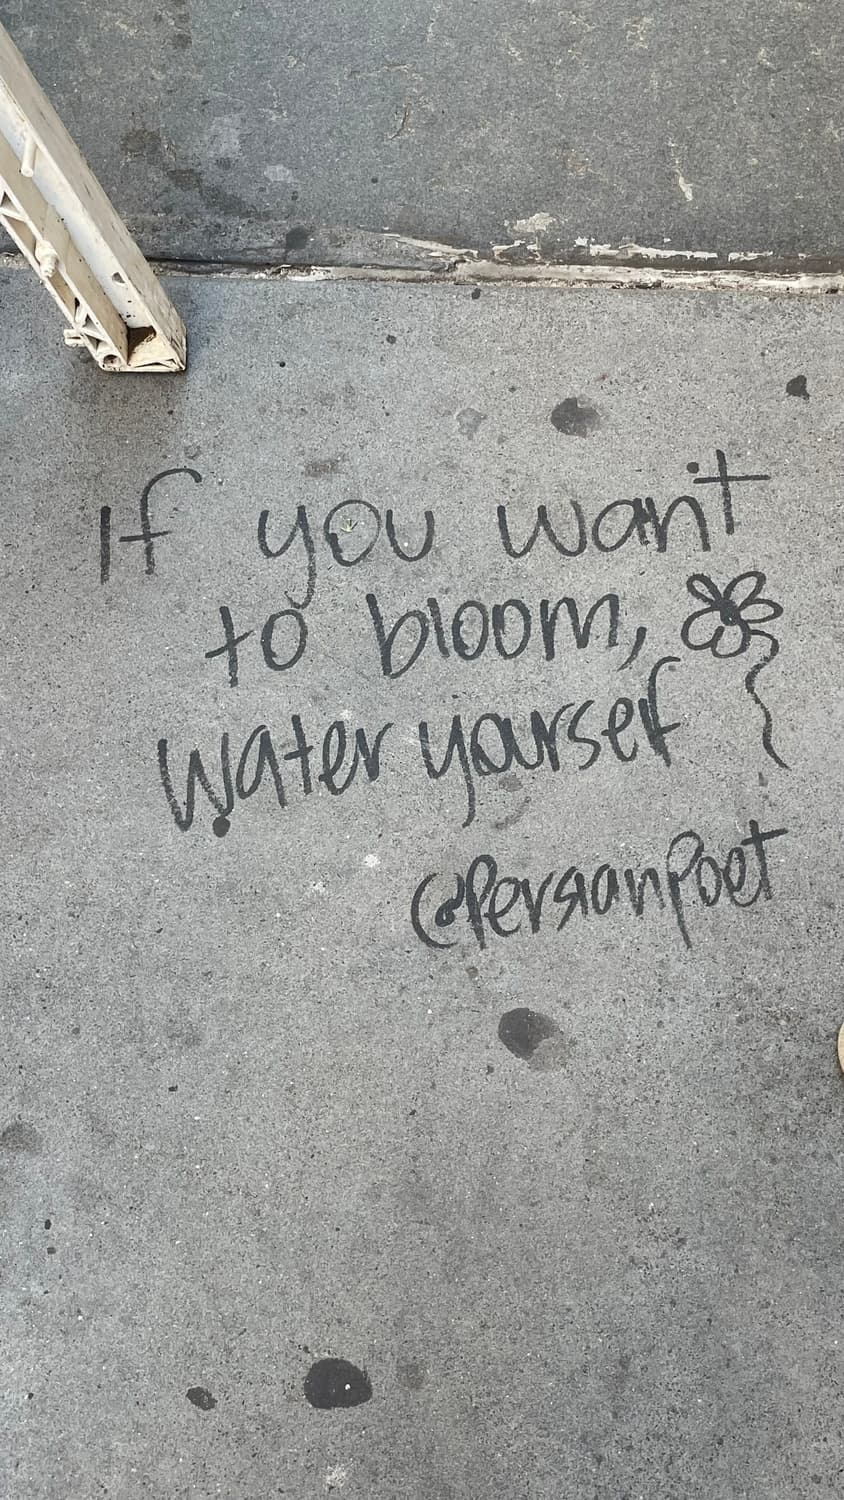 If you want
to bloom,
Water yourself
@PersianPoet